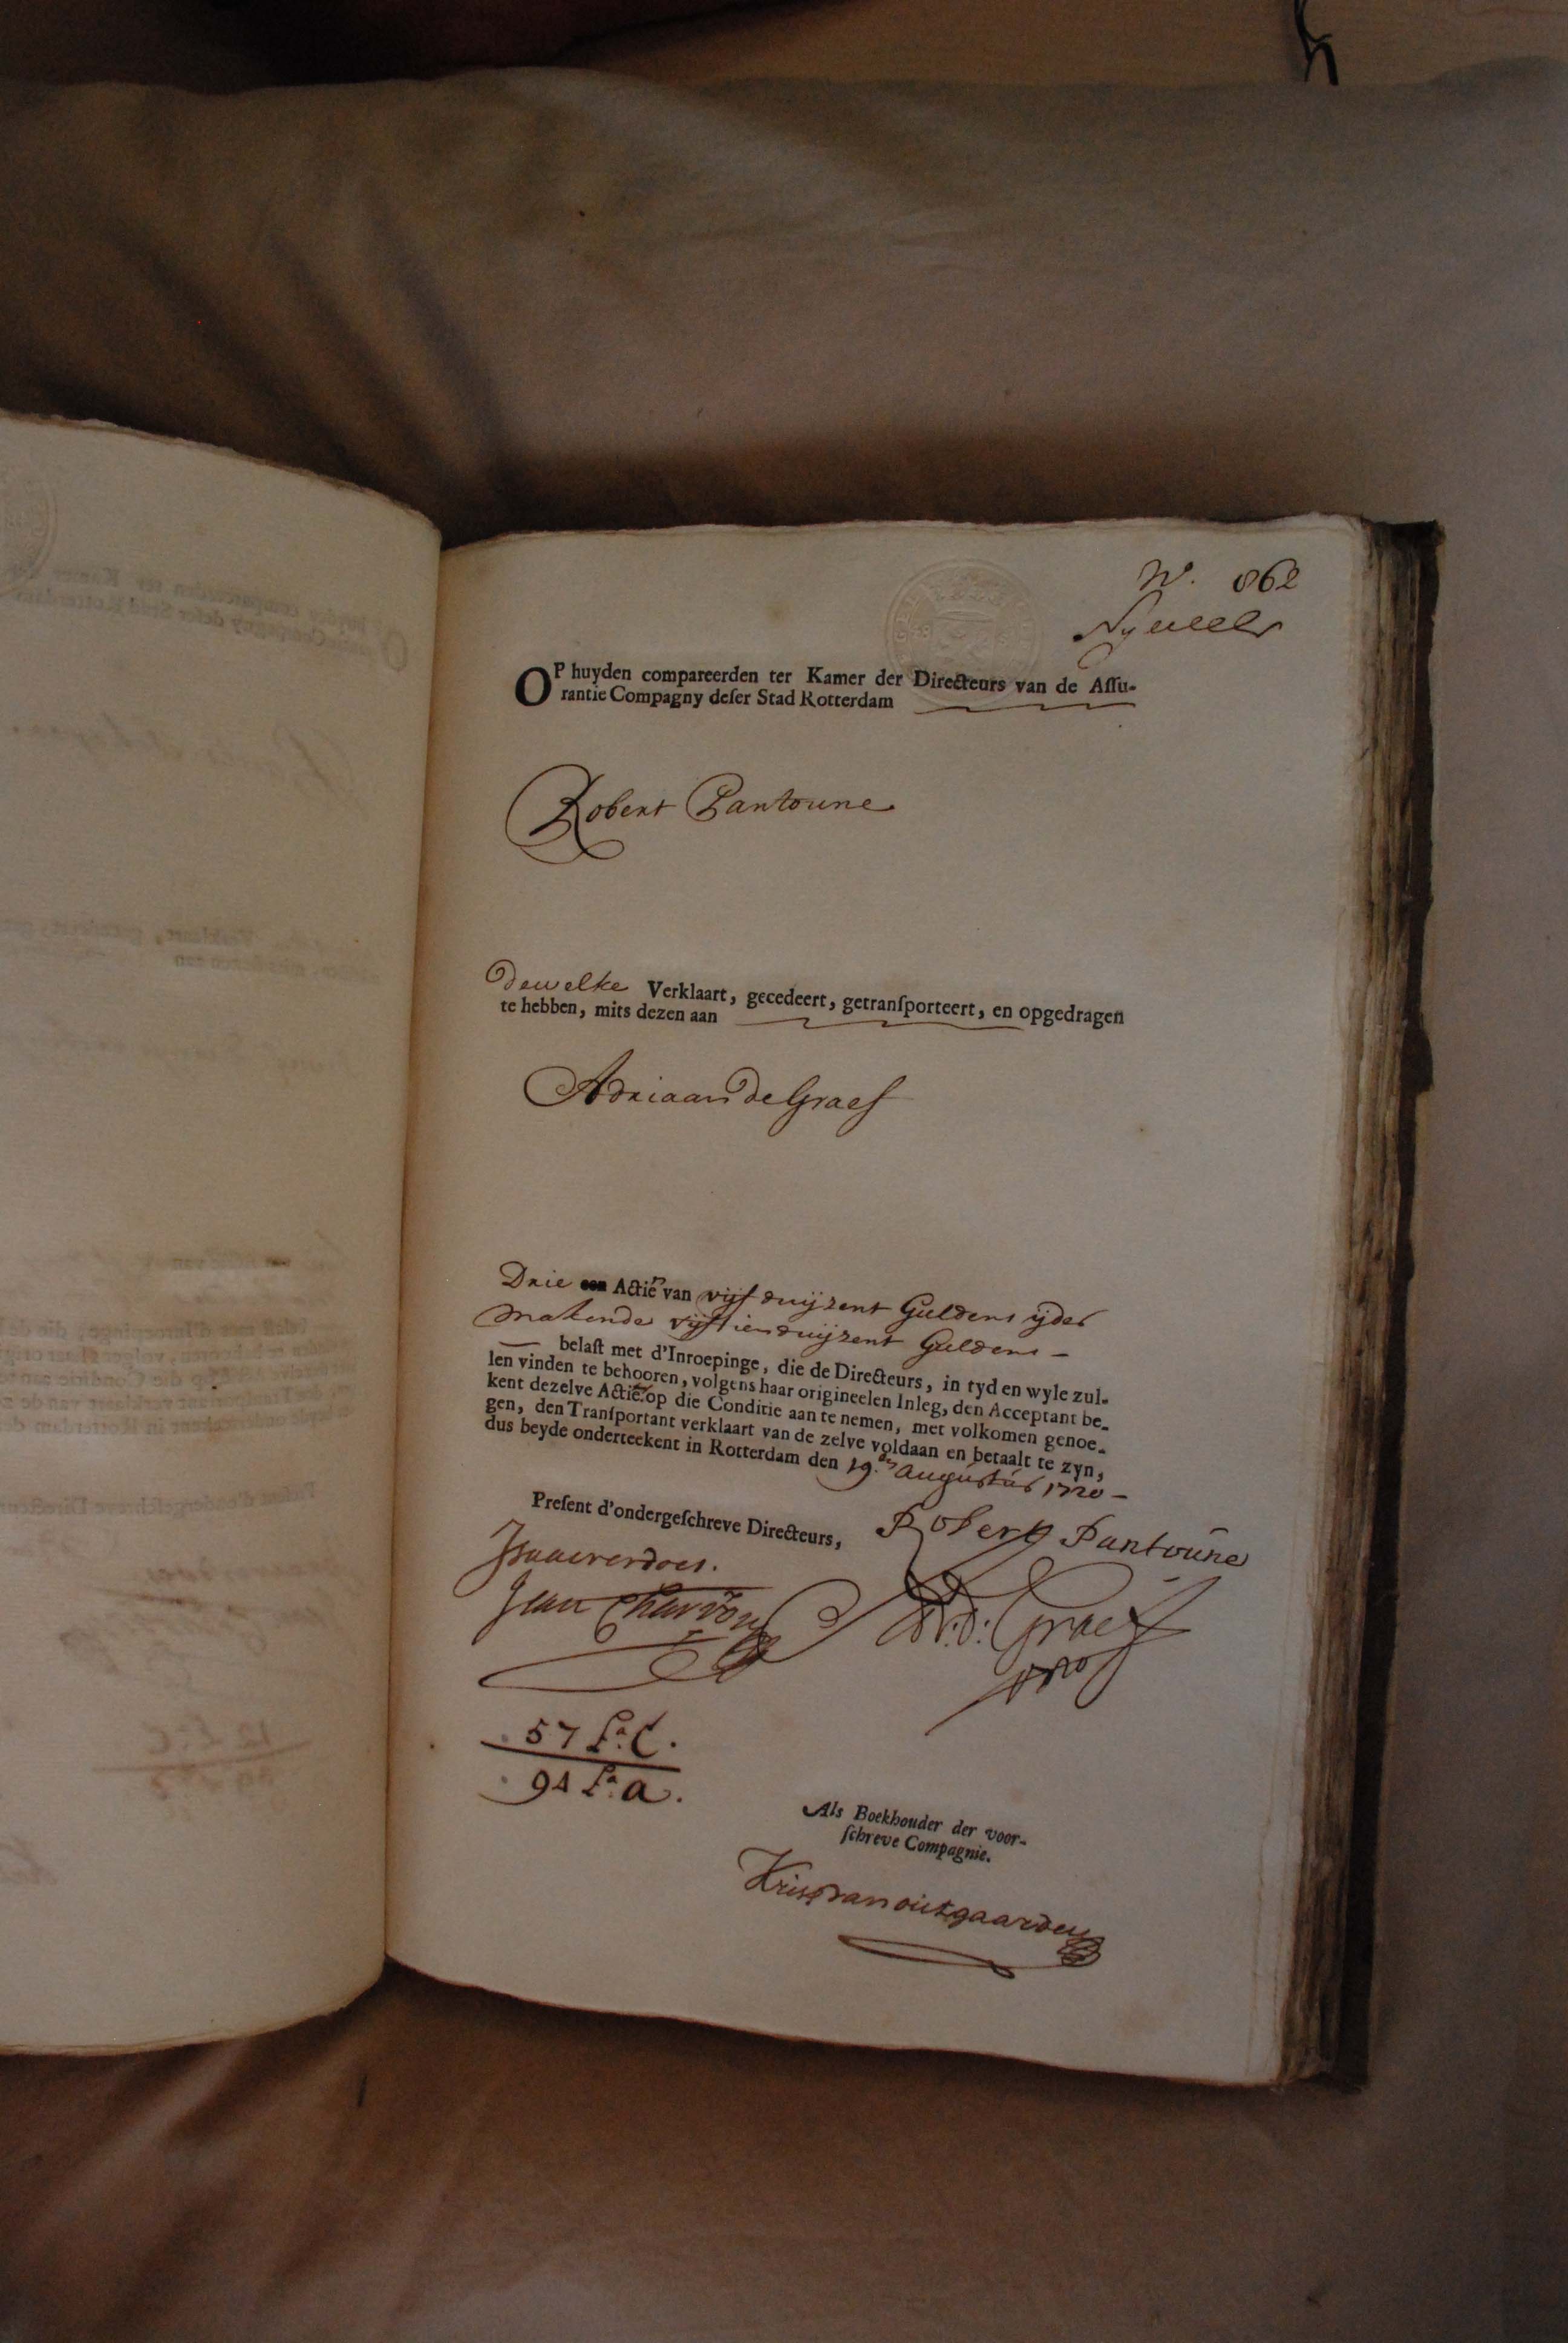 N.o 862
Nyveelt
OP huyden compareerden ter Kamer der Directeurs van de Assu-
rantie Compagny deser Stad Rotterdam
Robert Pantoune
dewelke Verklaart, gecedeert, getransporteert, en opgedragen
te hebben, mits dezen aan
Adriaan de Graef
Drie een Actiën van vijf duijzent Guldens ijder
makende vijftien duijzent Guldens —
— belast met d'Inroepinge, die de Directeurs, in tyd en wyle zul-
len vinden te behooren, volgens haar origineelen Inleg, den Acceptant be-
kent dezelve Actiën op die Conditie aan te nemen, met volkomen genoe-
gen, den Transportant verklaart van de zelve voldaan en betaalt te zyn,
dus beyde onderteekent in Rotterdam den 19.den augustus 1720 —
Present d'ondergeschreve Directeurs,
Robert Pantoune
Isaac verdoes.
Jean Charron
A: d: Graef
57 L:a C.
94 L:a a.
Als Boekhouder der voor-
schreve Compagnie.
Kris van outgaarden